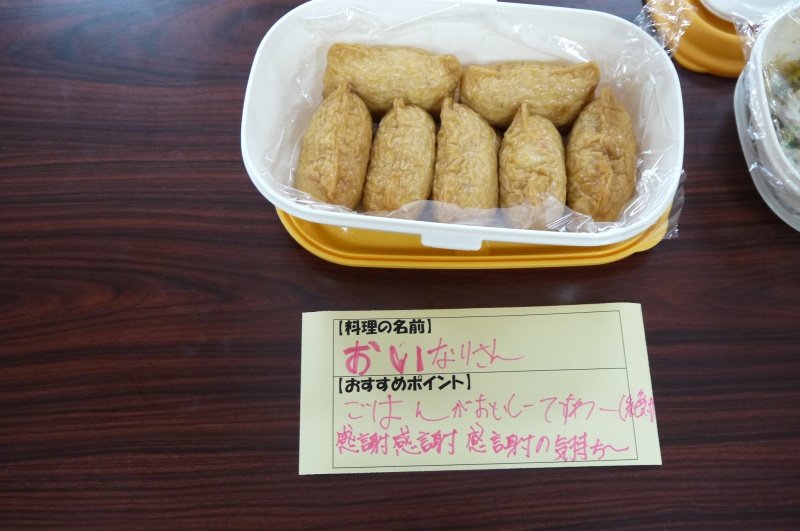 【料理の名前】
おいなりさん
【おすすめポイント】
ごはんがおいしーですわー(絶対
感謝感謝 感謝の気持ち〜